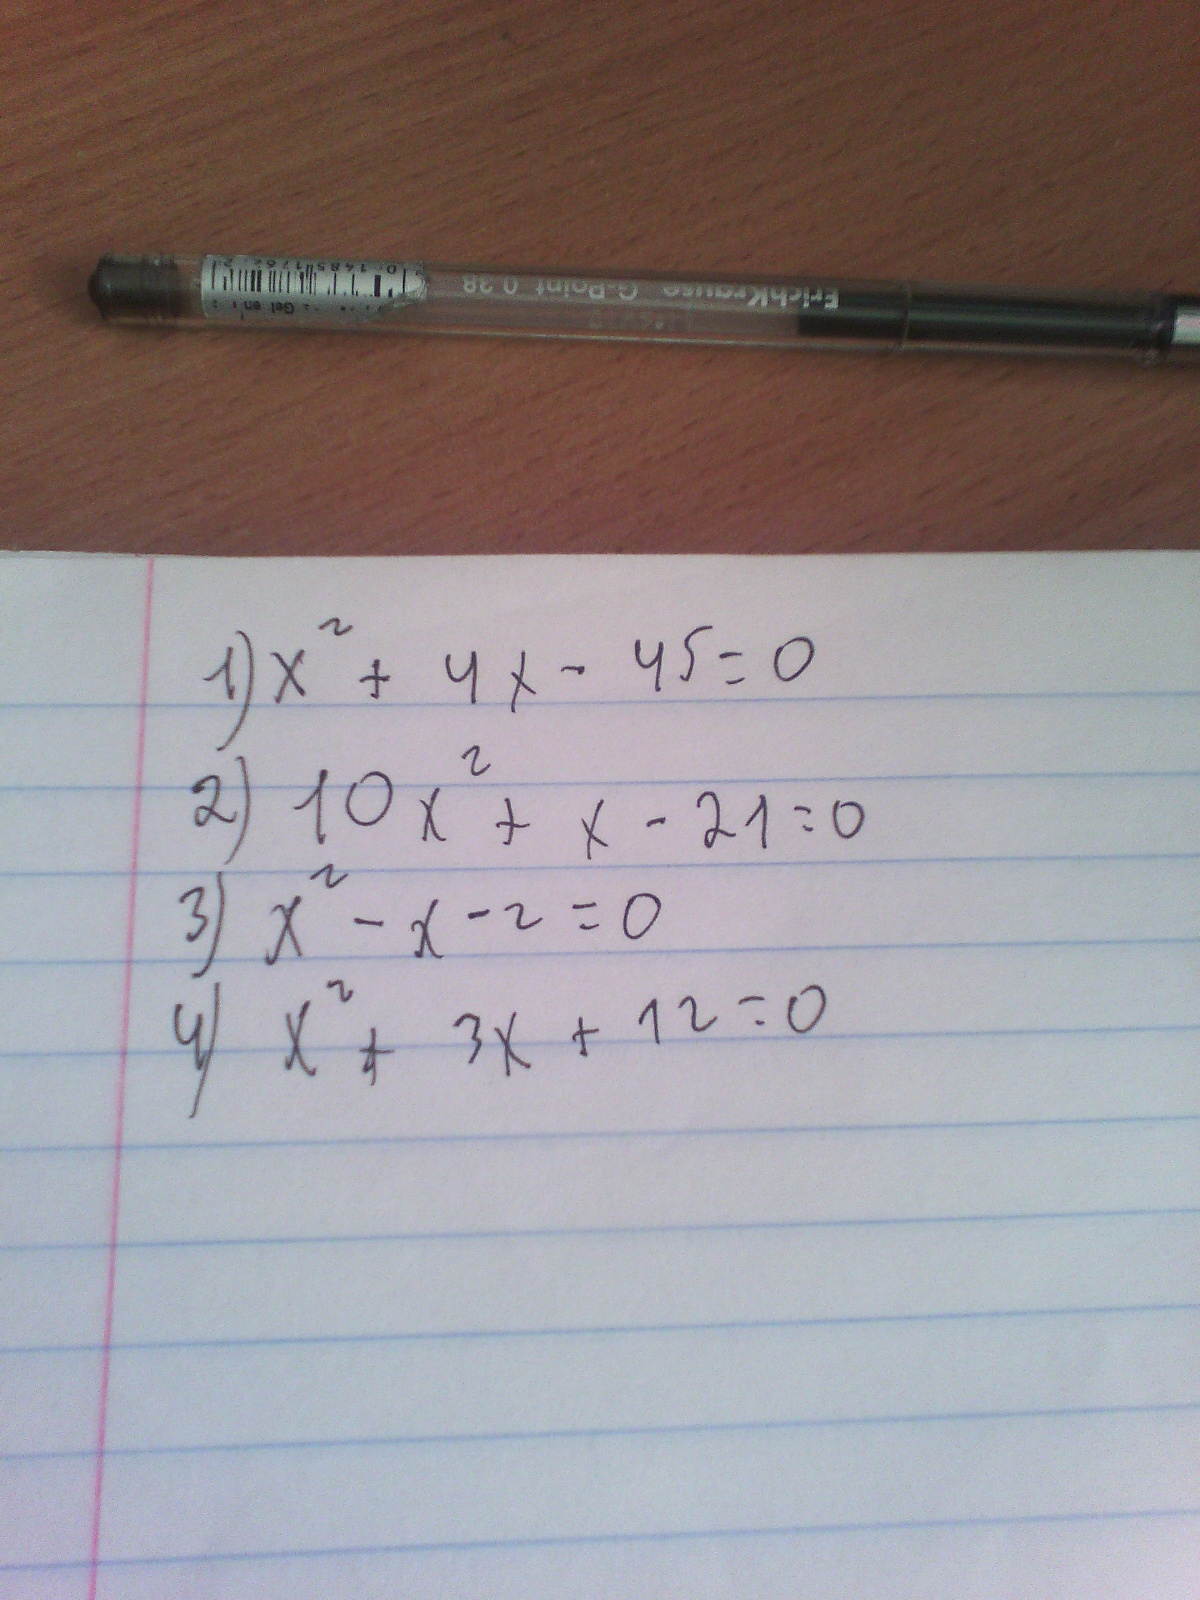 ErichKrause G-Point 0.38
Gel
1) x² + 4x - 45 = 0
2) 10x² + x - 21 = 0
3) x² - x - 2 = 0
4) x² + 3x + 12 = 0